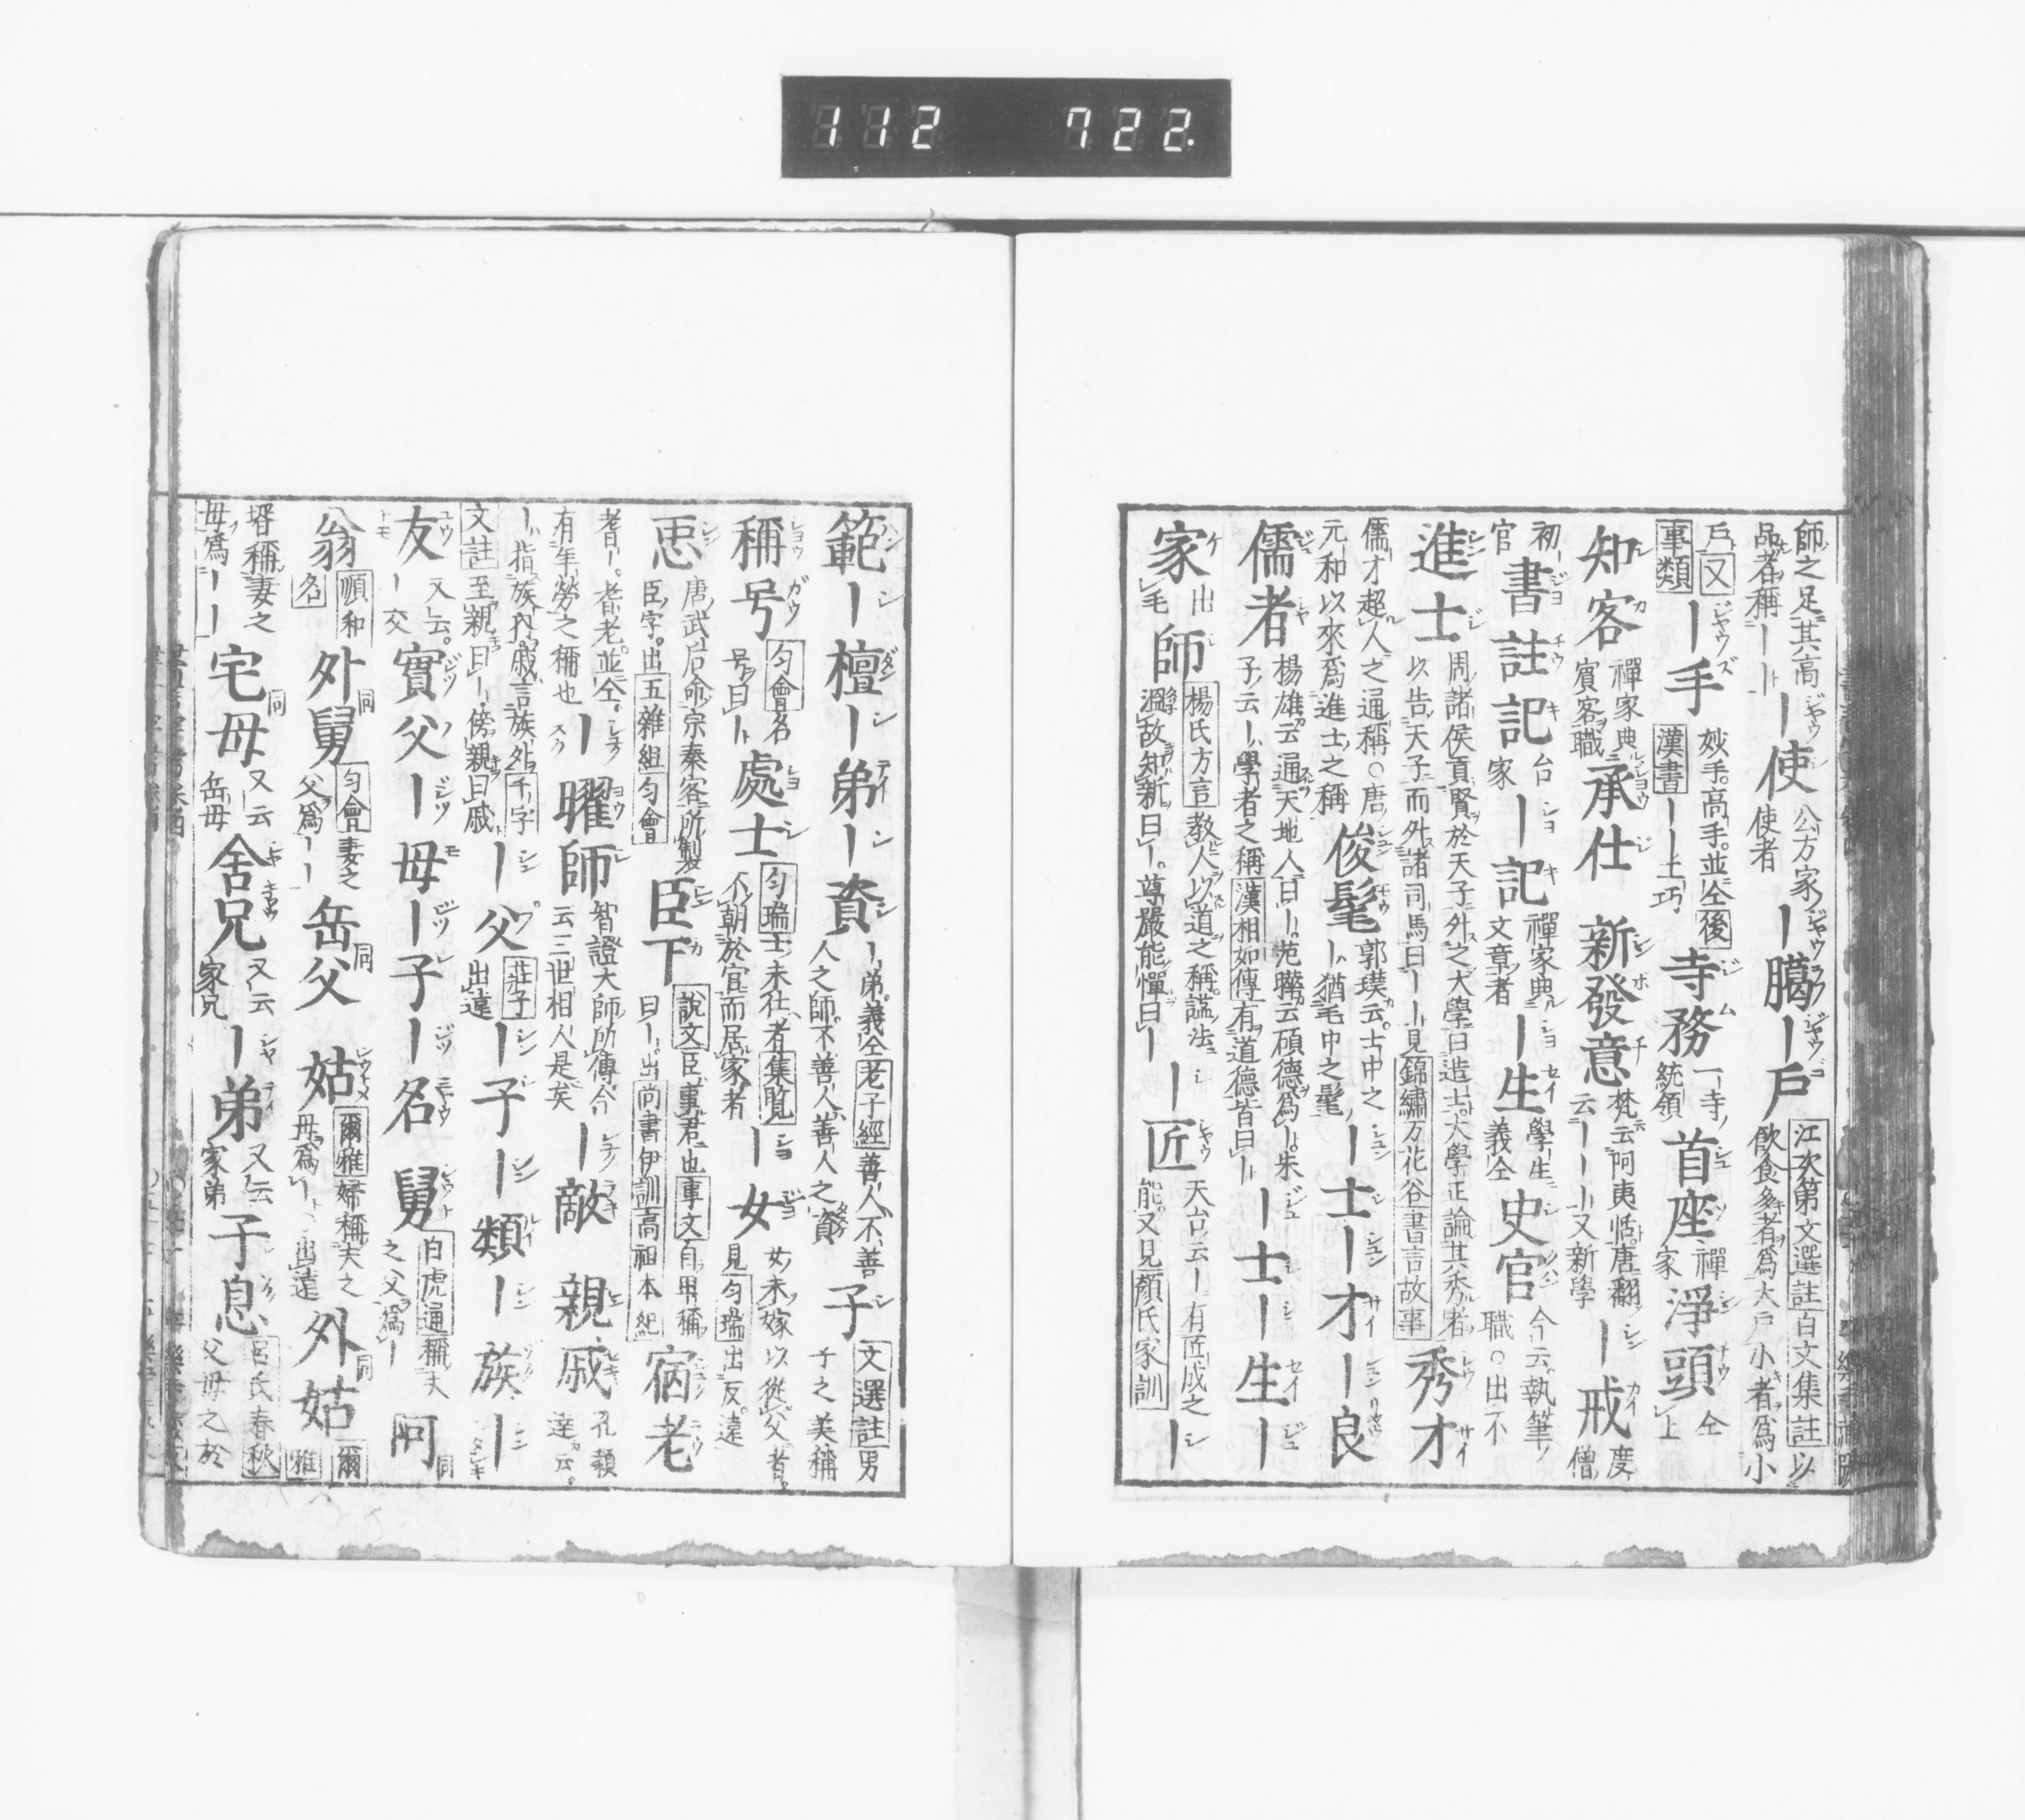 112 722
師之足其高品者稱｜｜使公方家使者｜﨟｜戶江次第文選註百文集註以飮食多者爲大戶小者爲小
戶又事類｜手妙手高手並仝後漢書｜｜土巧寺務一寺統領首座禪家淨頭仝上
知客禪家典賓客職承仕新發意梵云阿夷恬唐翻云｜｜｜又新學｜戒度僧
初｜官書註記台家｜記禪家典文章者｜生學生義仝史官今云執筆職○出不
進士周諸侯貢賢於天子外之大學曰造士大學正論其秀者以告天子而外諸司馬曰｜｜見錦繡万花谷書言故事秀才
儒才超人之通稱○唐元和以來爲進士之稱俊髦郭璞云士中之｜猶毛中之髦｜士｜才｜良
儒者楊雄云通天地人曰｜范曄云碩德爲｜朱子云｜學者之稱漢相如傳有道德皆曰｜｜士｜生｜
家出毛師楊氏方言教人以道之稱謚法溫故知新曰｜尊嚴能憚曰｜｜匠天台云｜有匠成之能又見顏氏家訓｜
範｜檀｜弟｜資｜弟義仝老子經善人不善人之師不善人善人之資子文選註男子之美稱
稱号勻會名号曰｜處士勻瑞士未仕者集覧不朝於官而居家者｜女女未嫁以從父者見勻瑞出反遠
恧唐武后命宗秦客所製臣字出五雜組勻會臣下說文臣事君也事文自甲稱曰｜出尚書伊訓高祖本紀宿老
者｜耆老並仝有年勞之稱也｜曜師智證大師所傳今云三世相人是矣｜敵親戚孔穎達云
｜指族內戚言族外千字文註至親曰｜傍親曰戚｜父莊子出遠｜子｜類｜族｜
友又云｜交實父｜母｜子｜名舅白虎通稱夫之父爲｜阿同
翁順和名外舅同勻會妻之父爲｜｜岳父同姑爾雅婦稱夫之母爲｜出遠外姑同爾雅
壻稱妻之母爲｜｜宅母同又云岳母舍兄又云家兄｜弟又云家弟子息呂氏春秋父母之於